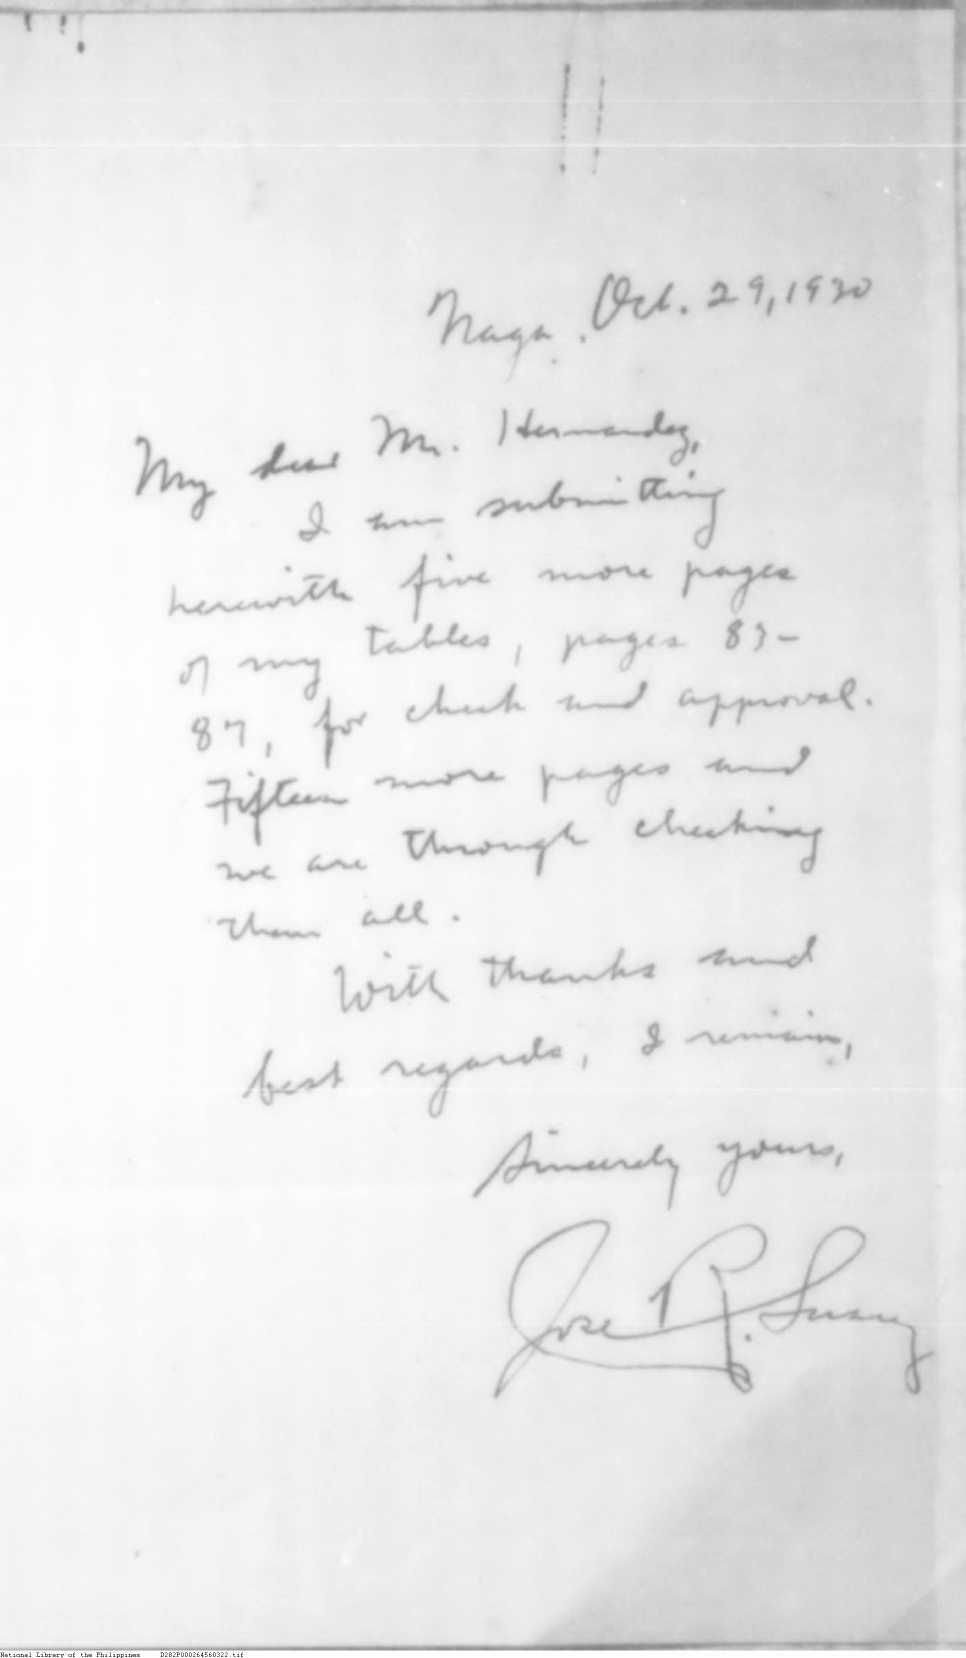 Naga, Oct. 29, 1930
My dear Mr. Hernandez,
I am submitting
herewith five more pages
of my tables, pages 83-
87, for check and approval.
Fifteen more pages and
we are through checking
them all.
With thanks and
best regards, I remain,
Sincerely yours,
Jose R.
National Library of the Philippines D282P000264560322.tif